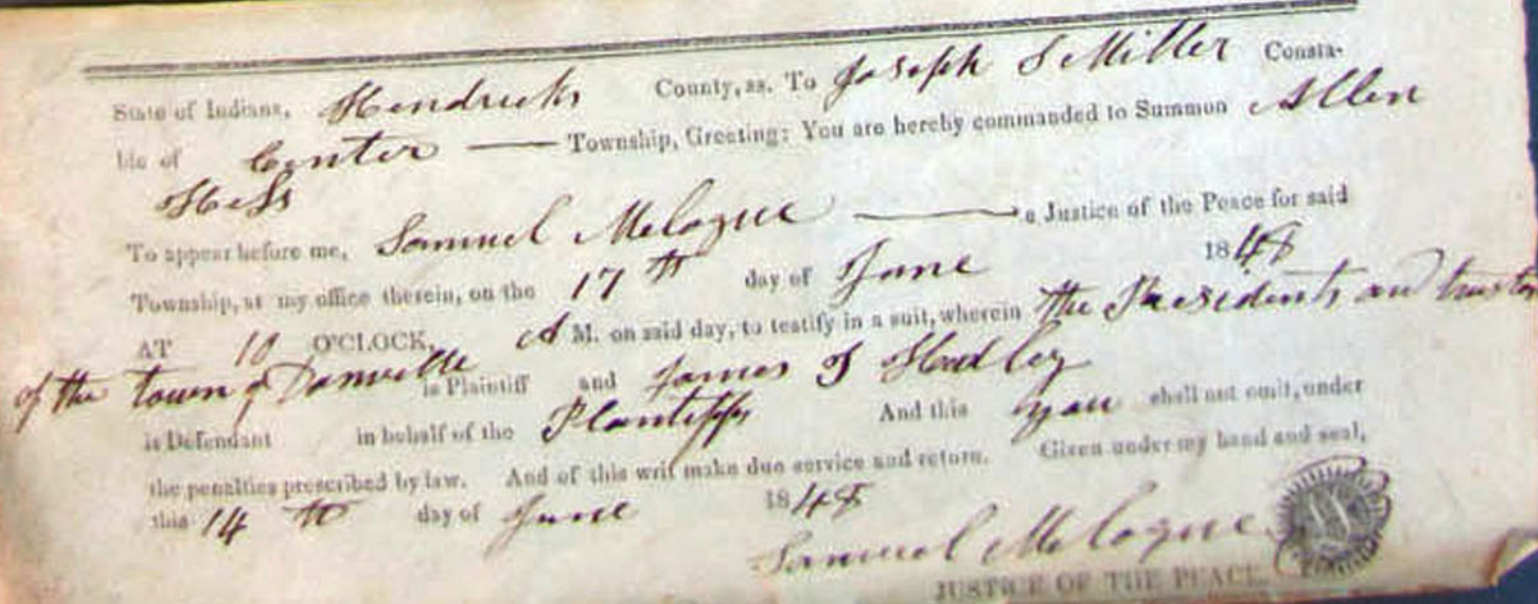 State of Indiana, Hendricks County, ss. To Joseph S Miller Consta-
ble of Center Township, Greeting: You are hereby commanded to Summon Allen
Hess
To appear before me, Samuel Melogue a Justice of the Peace for said
Township, at my office therein, on the 17th day of June 1848
AT 10 O'CLOCK, A M. on said day, to testify in a suit, wherein the Presidents and trustees
of the town of Danville is Plaintiff and James T Hadley
is Defendant in behalf of the Plantiff And this you shall not omit, under
the penalties prescribed by law. And of this writ make due service and return. Given under my hand and seal,
this 14th day of June 1848
Samuel Melogue
JUSTICE OF THE PEACE.